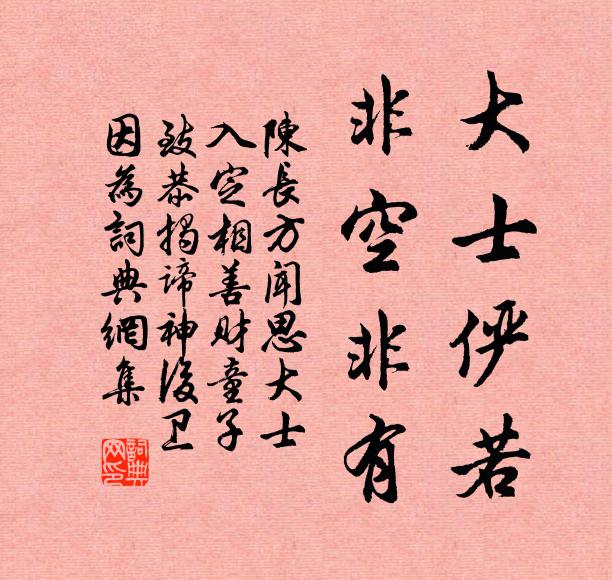 大士儼若
非空非有
陳長方聞思大士
入定相善財童子
致恭揭諦神後卫
因為詞典網集
詞典网印